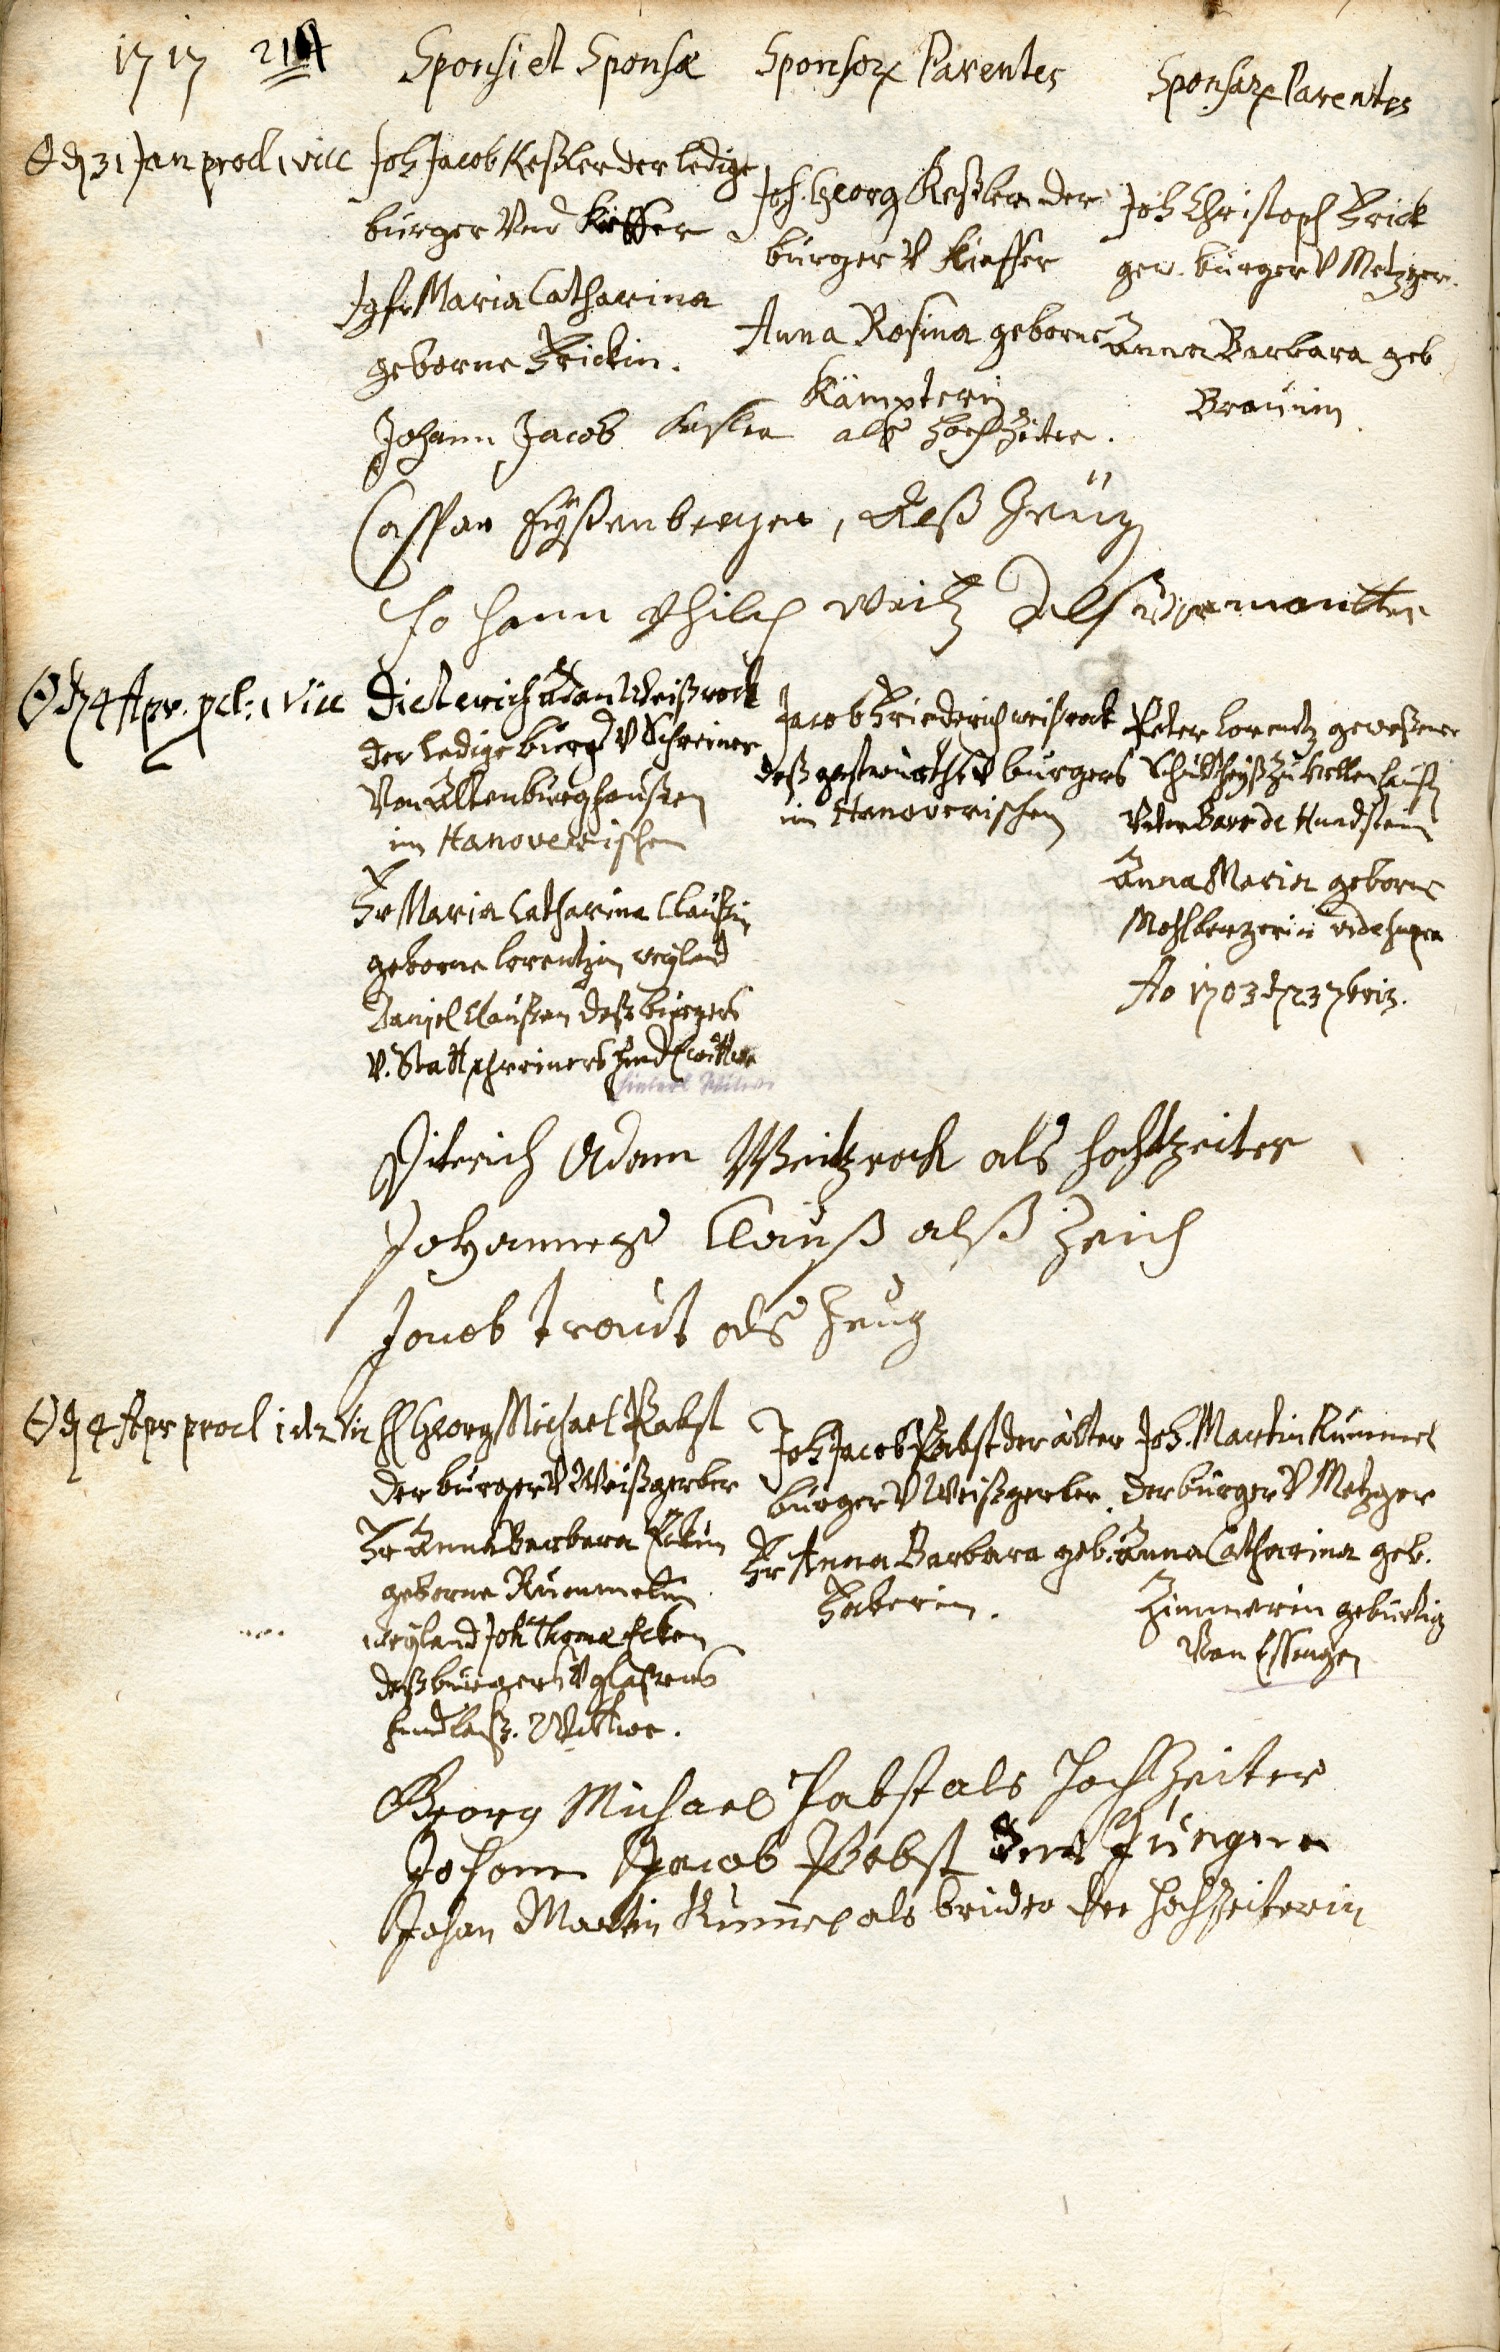 1717 214
Sponsi et Sponsæ
Sponsor Parentes
Sponsar Parentes
31 Jan procl 1 vice
Joh Jacob Keßler der ledige
burger Und Kieffer
Jgfr Maria Catharina
geborne Frickin.
Joh. Georg Keßler der
burger V Kieffer
Anna Rosina geborne
Kämpterin
Joh Christoph Frick
gew. burger V Metzger.
Anna Barbara geb
Braunin
Johann Jacob Kesler als hochzeiter.
Casspar, deß Zeug
Johann Philip Weitz Delß
4 Apr. pcl: 1 vice
Dieterich Adam Weißrock
der ledige burger V Schreiner
Von Altenburghaußen
im Hanoverischen
Fr Maria Catharina Claußin
geborne Lorentzin, weyland
Daniel Claußen deß burgers
V. Statt schreiners hind Wittwe
hinterl Witwe
Jacob Friederich weißrock
deß gastwirths V burgers
im Hanoverischen
Peter Lorentz geweßener
Schultheyß zu
Anna Maria geborne
vide supra
Ao 1703 d 23 7briz.
Diterich Adam Weitzrock als hochtzeiter
Johannes Clauß alß Zeich
Jacob Traut als Zeug
4 Apr procl 1 et 2 vice
H Georg Michael Pabst
der burger V Weißgerber
Fr Anna Barbara Eckin
geborne Rummelin
weyland Joh Thomæ Ecken
deß burgers V glaßers
hindlaß. Wittwe.
Joh Jacob Pabst der älter
burger V Weißgerber.
Fr Anna Barbara geb.
Faberin.
Joh. Martin Rummel
der burger V Metzger
Anna Catharina geb.
Zimmerin gebürtig
Von Essingen
Georg Michael Pabst als Hochzeiter
Johann Jacob Pabst der Jüngere
Johan Martin Rumel als bruder der hochzeiterin